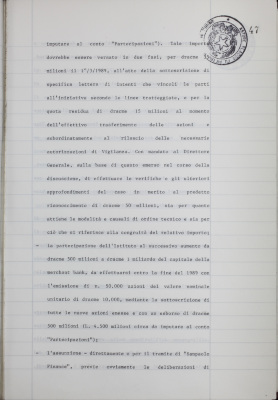 47
imputate al conto "Partecipazioni"). Tale importo
dovrebbe essere versato in due fasi, per dracme
milioni il 1°/3/1989, all'atto della sottoscrizione di
specifica lettera di intenti che vincoli le parti
all'iniziativa secondo le linee tratteggiate, e per la
quota residua di dracme 15 milioni al momento
dell'effettivo trasferimento delle azioni e
subordinatamente al rilascio delle necessarie
autorizzazioni di Vigilanza. Con mandato al Direttore
Generale, sulla base di quanto emerso nel corso della
discussione, di effettuare le verifiche e gli ulteriori
approfondimenti del caso in merito al predetto
riconoscimento di dracme 50 milioni, sia per quanto
attiene le modalità e causali di ordine tecnico e sia per
ciò che si riferisce alla congruità del relativo importo;
- la partecipazione dell'Istituto al successivo aumento da
dracme 500 milioni a dracme 1 miliardo del capitale della
merchant bank, da effettuarsi entro la fine del 1989 con
l'emissione di n. 50.000 azioni del valore nominale
unitario di dracme 10.000, mediante la sottoscrizione di
tutte le nuove azioni emesse e con un esborso di dracme
500 milioni (L. 4.500 milioni circa da imputare al conto
"Partecipazioni");
- l'assunzione - direttamente o per il tramite di "Sanpaolo
Finance", previe ovviamente le deliberazioni di